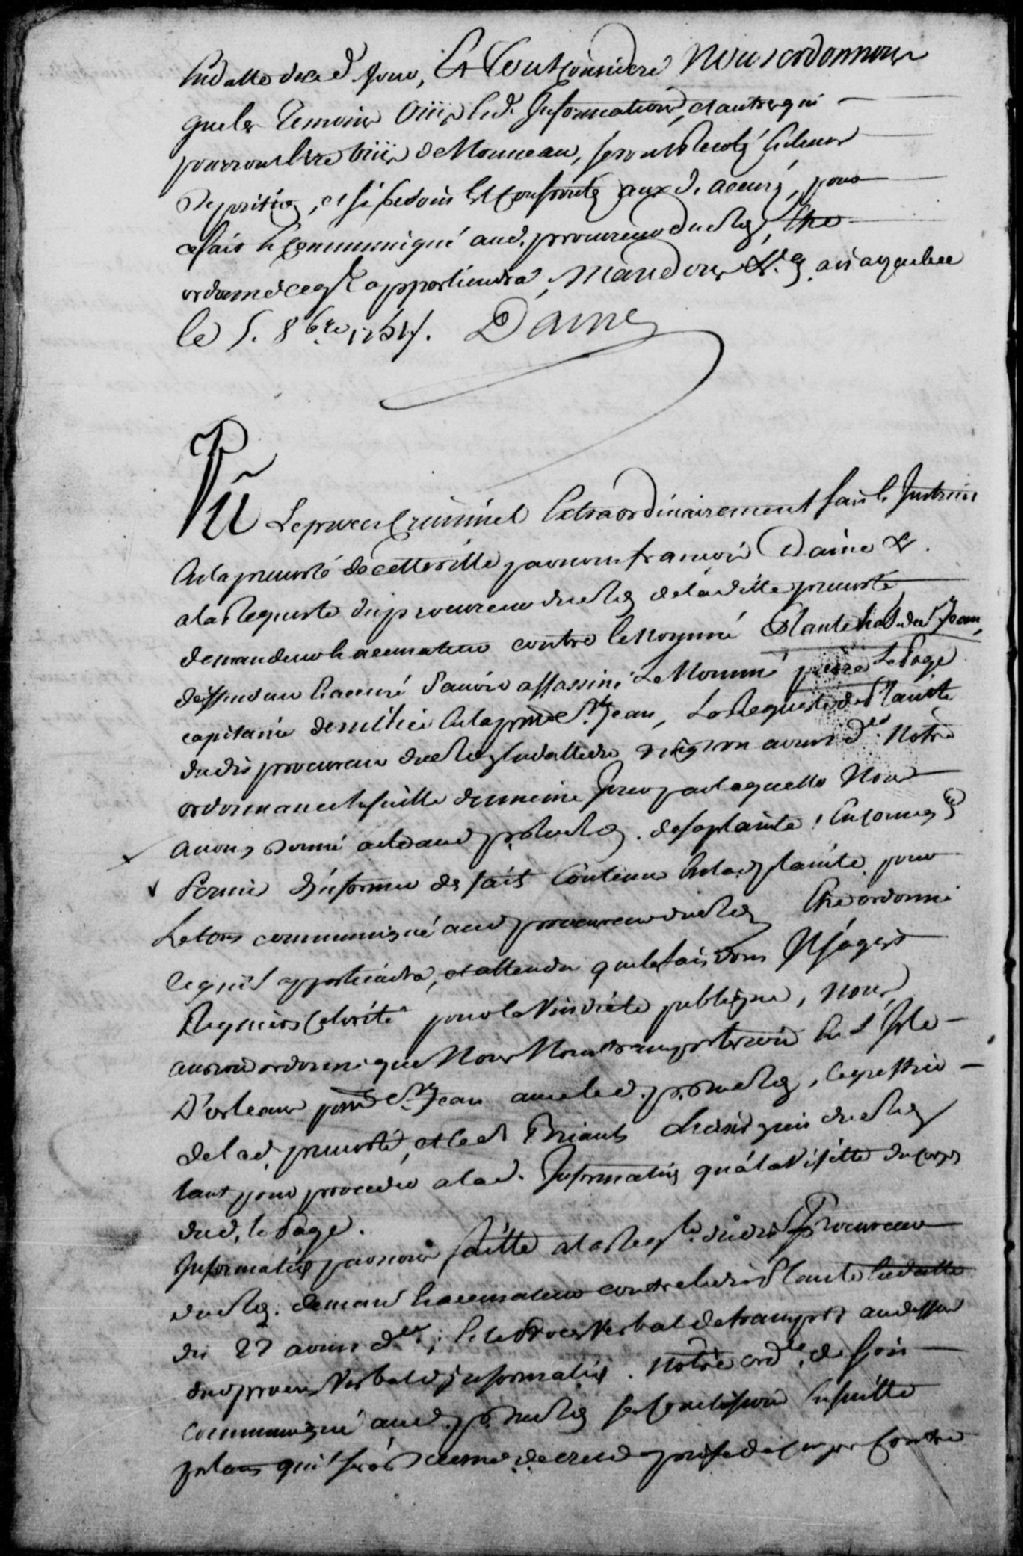 En datte de ce d. jour, Et tout consideré Nous ordonnons
que les temoins ouïs esd. Informations, et autres qui
pourront être ouïs de Nouveau, seront recolés en leurs
depositions, et si besoin est confrontés aux d. accusé, pour
ce fait et communiqué aud. procureur du Roy, Etre
ordonné ce qu'il appartiendra, Mandons &a. à quebec
le 5. 8bre 1754. Daine
Vû Le procès Criminel Extraordinairement fait et Instruit
En la prevosté de cette ville par nous françois Daine &
a la Requeste du procureur du Roy de la ditte prevosté
demandeur et accusateur contre le Nommé Plante hab. de St Jean,
deffendeur et accusé d'avoir assassiné Le Nommé pierre Le Page
capitaine de milice En la paroisse St Jean, La Requeste de Plainte
dudit procureur du Roy En datte du aoust d. Notre
ordonnance Ensuitte du meme Jour par laquelle Nous
avons donné acte aud. p. du Roy de sa plainte,
Permis d'informer des faits Contenus En lad. plainte pour
Le tout communiqué aud. procureur du Roy Etre ordonné
ce qu'il appartiendra, et attendu que le fait dont Il s'agit
Requiert Celerité pour la Vindicte publique, Nous
aurions ordonné que Nous Nous transporterions En L'Isle
D'orleans paroisse St Jean avec led. p. du Roy, le greffier
de lad. prevosté, et le Sr Briault chirurgien du Roy
tant pour proceder a lad. Information qu'a la Visitte du corps
dud. le Page.
Information par nous faitte a la Reqte. dudit Procureur
du Roy. demandeur et accusateur contre ledit Plante En datte
du 22 aoust der; Et le Procès Verbal de transport au dessus
dud. procès Verbal d'information. Notre ordce. de soit
communiqué aud. p. du Roy ses Conclusions Ensuitte
prises de corps Contre